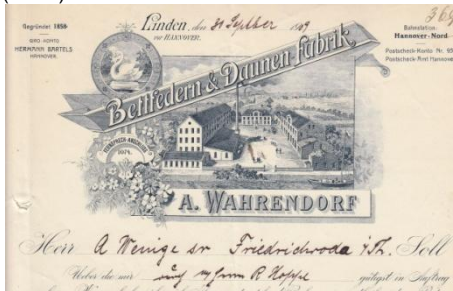 Gegründet 1859
GIRO-KONTO
HERMANN BARTELS
HANNOVER.
Linden, den 30 Septber 1909
vor HANNOVER.
Bahnstation:
Hannover-Nord
Postscheck-Konto Nr.
Postscheck-Amt Hannover
Bettfedern- & Daunen-Fabrik
1874.
A. WAHRENDORF
Herr A Wenige sr Friedrichroda i/Th. Soll
Ueber die mir R Hoppe gütigst in Auftrag